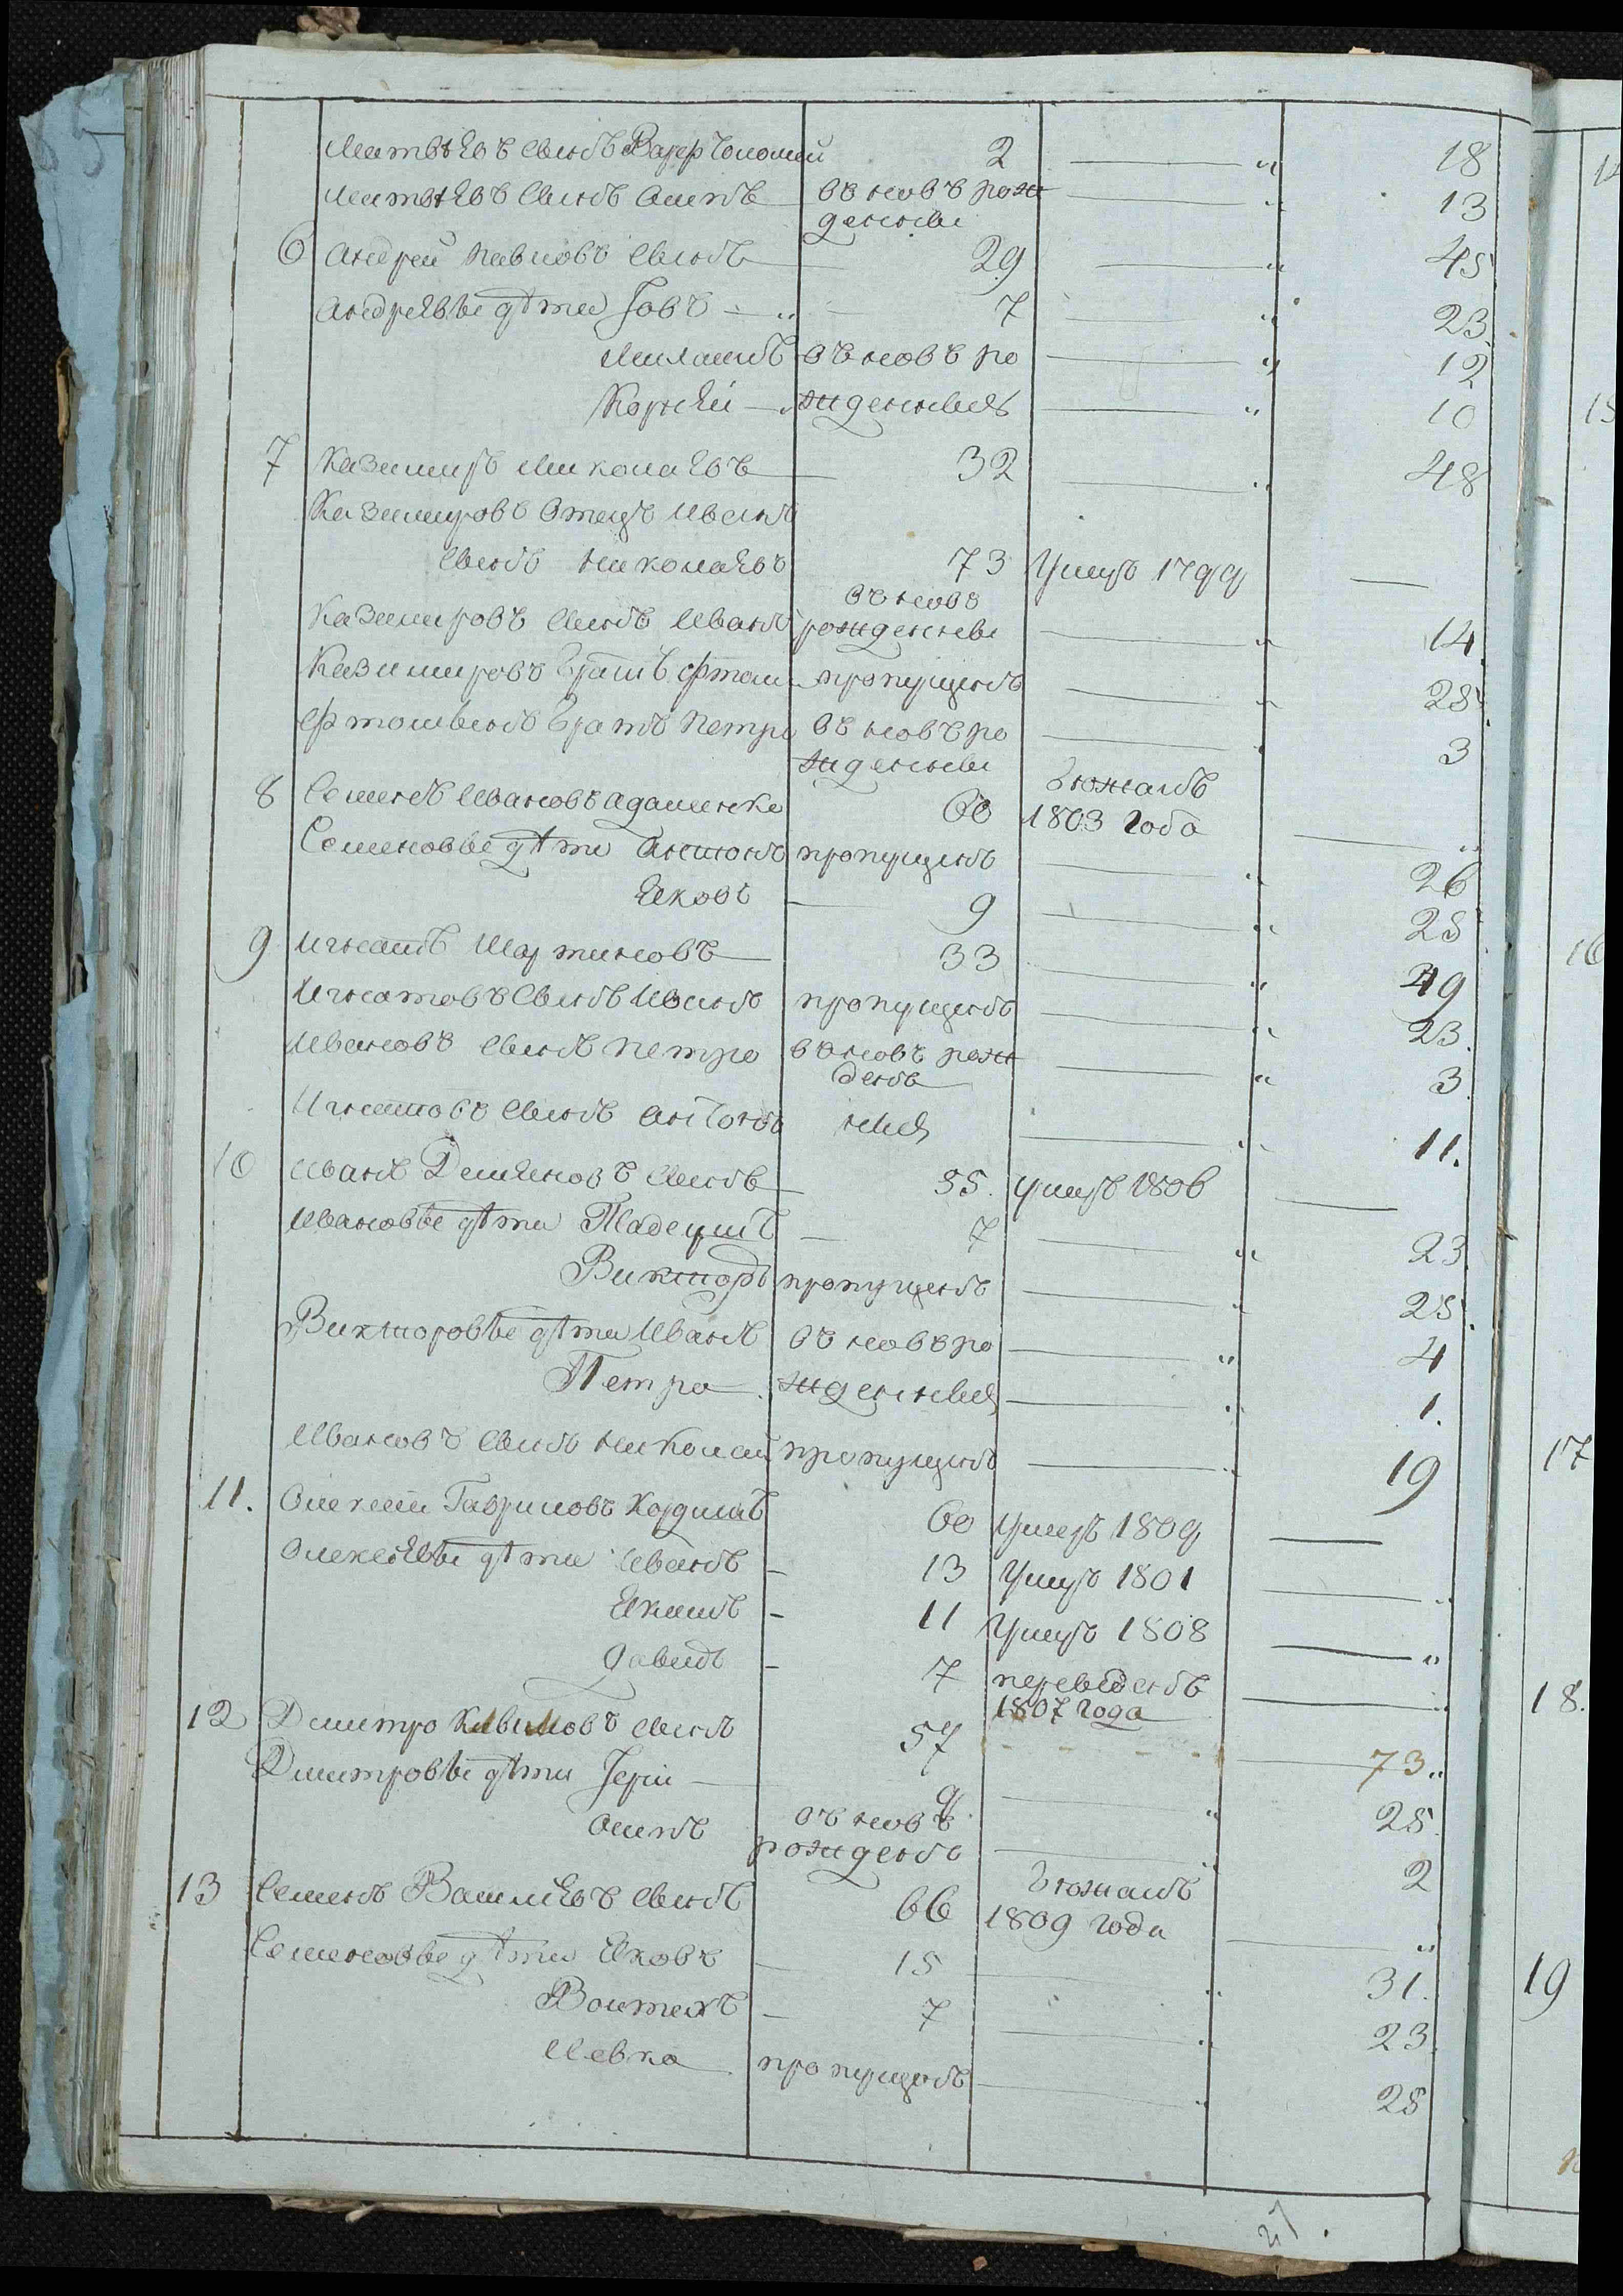 Матвѣевъ сынъ Варфоломей 2 — „ 18
Матвѣевъ сынъ Осипъ въ новъ рож — „ 13
денны
6 Андрей Павловъ сынъ — 29 — „ 45
Андреевы дѣти Іовъ — „ 7 — „ 23
въ новъ ро — „ 12
Корнѣй — жденныя — „ 10
7 Казимиръ Миколаевъ — 32 — „ 48
Казимировъ Отецъ Иванъ
сынъ Николаевъ 73 Умеръ 1799 —
въ новъ
Казимировъ сынъ Иванъ рожденны — „ 14.
Казимировъ братъ пропущенъ — „ 25.
братъ Петръ въ новъ ро — „ 3
жденны
8 Семенъ Ивановъ 60 бѣжалъ
1803 года — „
Семеновы дѣти Антонъ пропущенъ — „ 26
Яковъ — 9 — „ 25
9 Игнатъ Мартиновъ — 33 — „ 49
Игнатовъ сынъ Иванъ пропущенъ — „ 23.
Ивановъ сынъ Петро въ новъ рож — „ 3
денъ
Игнатовъ сынъ Антонъ ныя — „ 11.
10 Иванъ Демяновъ сынъ — 55. Умеръ 1806 —
Ивановы дѣти Тадеушъ — 7 — „ 23
Викторъ пропущенъ — „ 25.
Викторовы дѣти Иванъ въ новъ ро — „ 4
Петро жденныя — „ 1.
Ивановъ сынъ Николай пропущенъ — „ 19
11. Олексей Гавриловъ 60 Умеръ 1809 —
Олексѣевы дѣти Иванъ — 13 Умеръ 1801 — „
Якимъ — 11 Умеръ 1808 — „
Давидъ — 7 переведенъ — „
1807 года
12 Дмитро сынъ 57 — 73 „
Дмитровы дѣти — 9. — „ 25
Осипъ въ новъ
рожденъ — „ 2
13 Семенъ Васильевъ сынъ 66 бѣжалъ
1809 года — „
Семеновы дѣти Яковъ — 15 — „ 31.
Войтехъ — 7 — „ 23.
Левко пропущенъ — „ 25